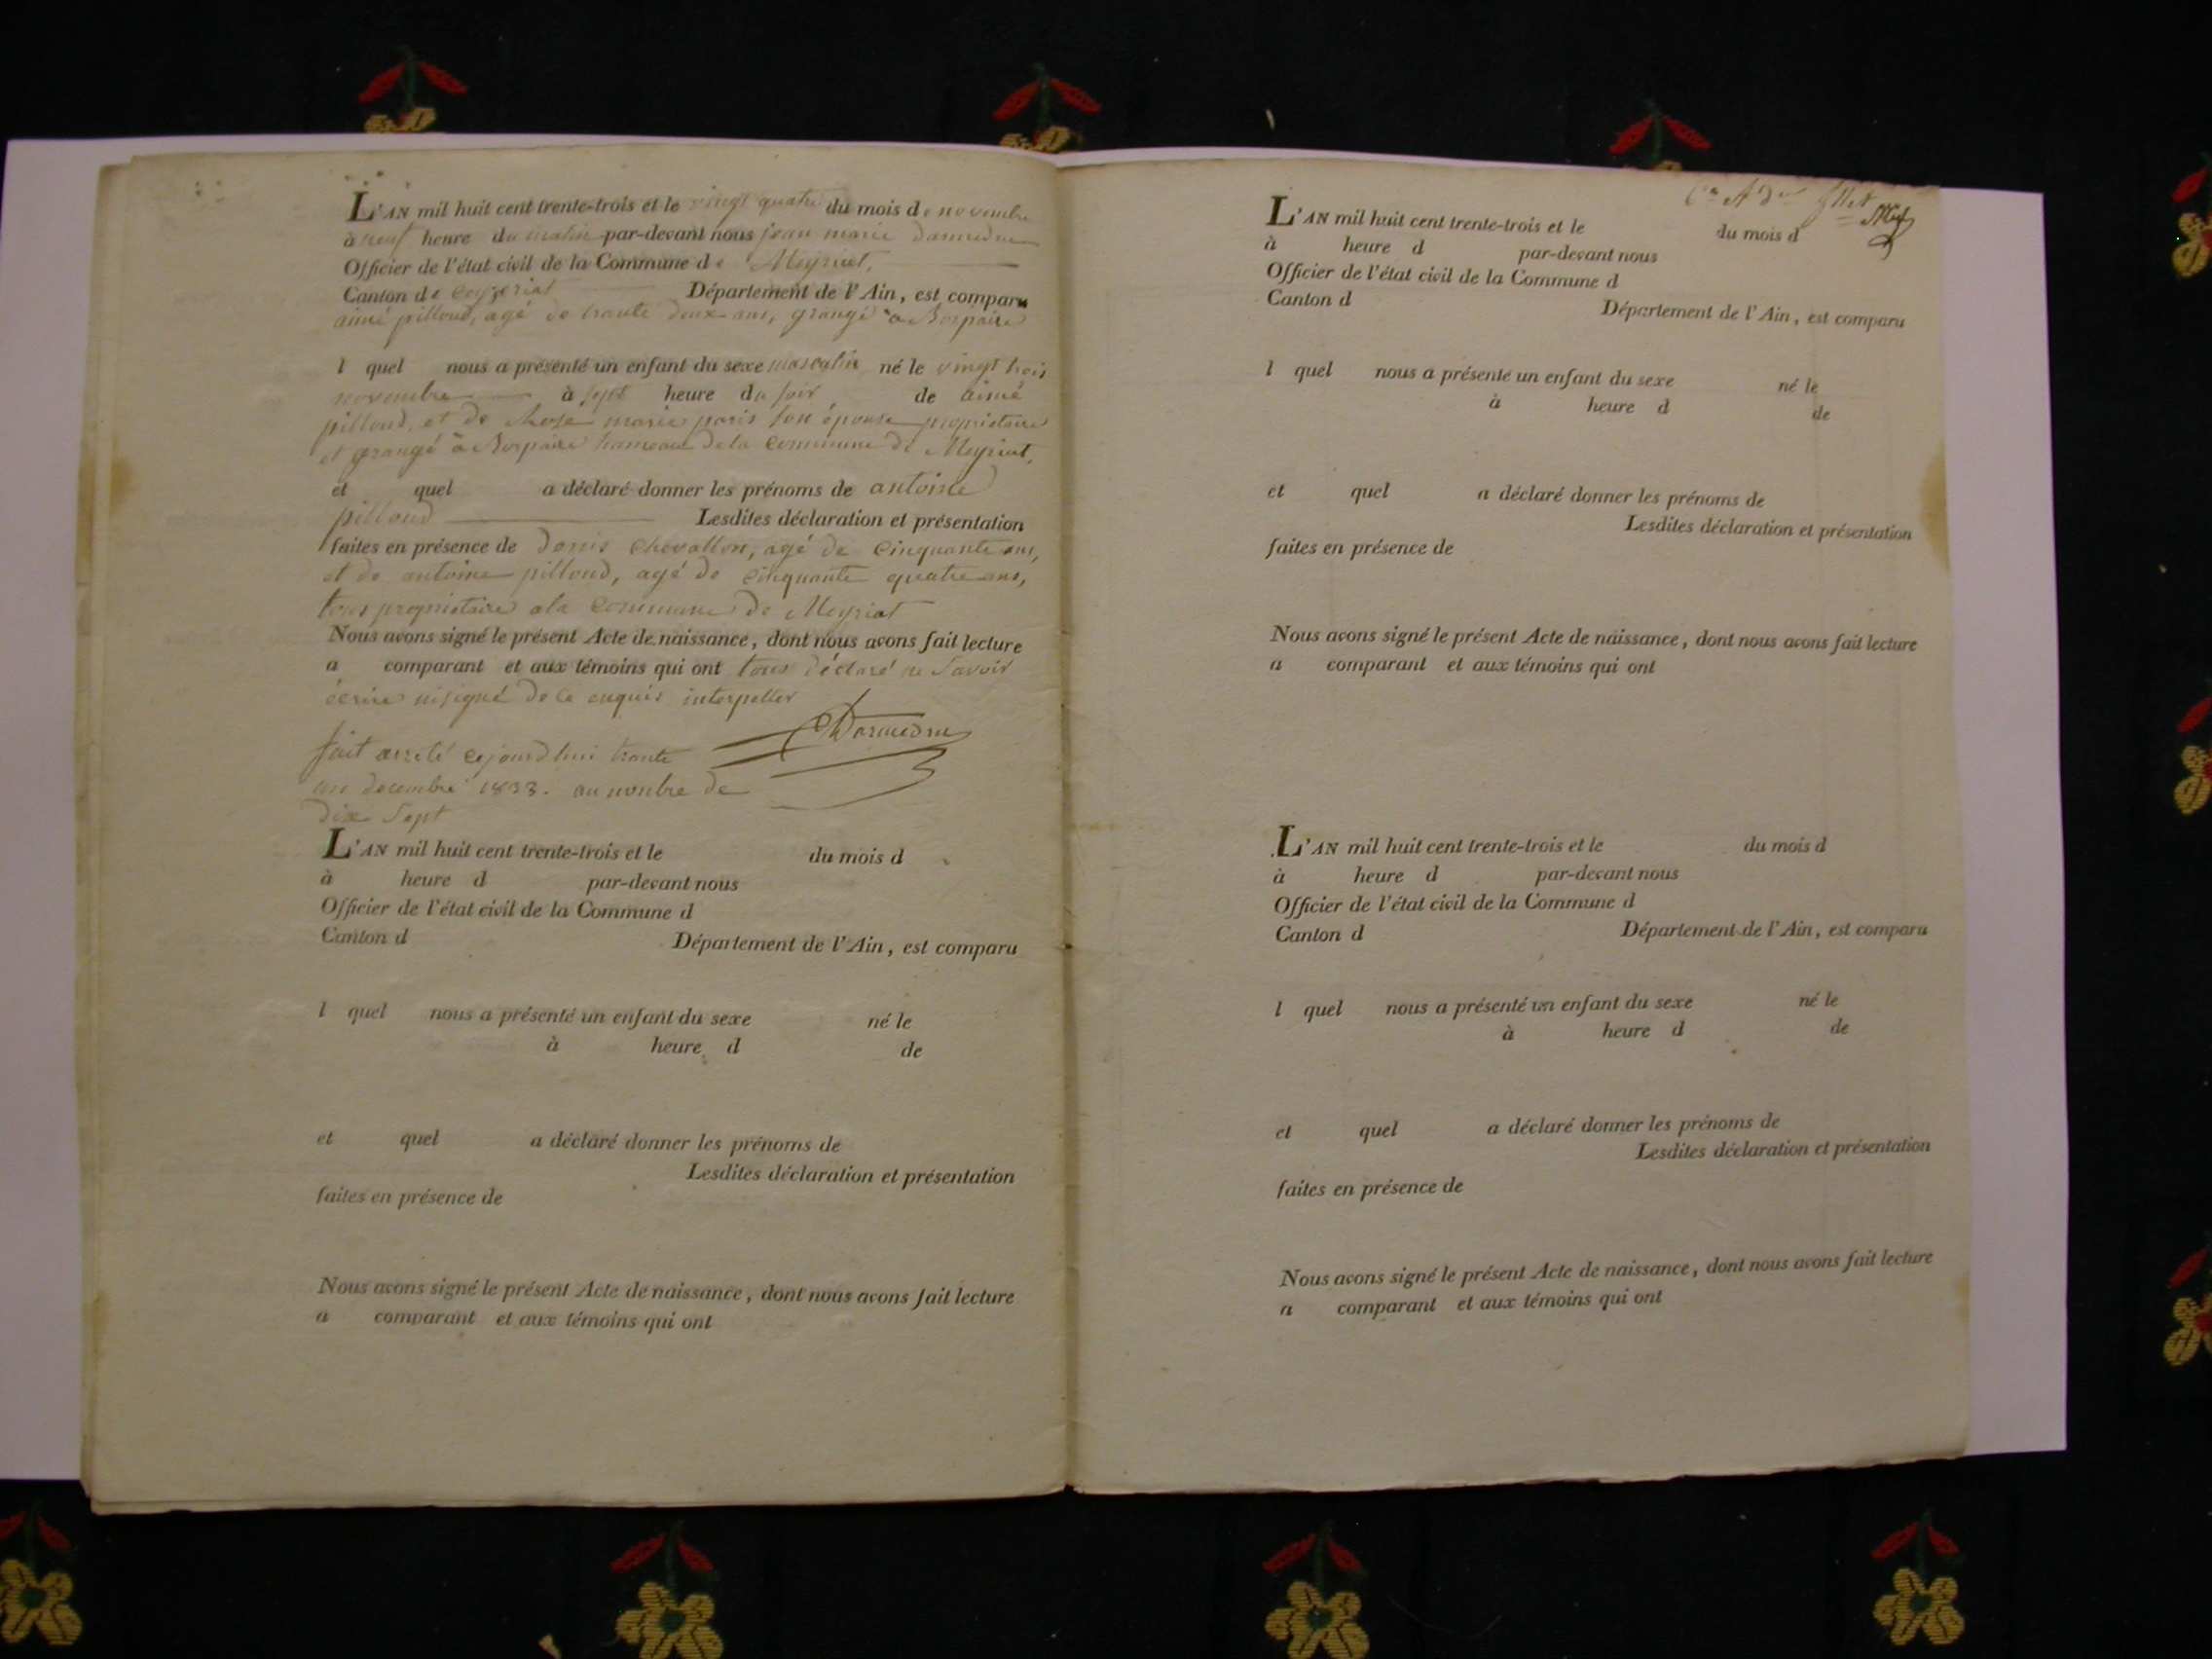 L'AN mil huit cent trente-trois et le vingt quatre du mois de novembre
à neuf heure du matin par-devant nous jean marie
Officier de l'état civil de la Commune de Meyriat,
Canton de Ceyzeriat Département de l'Ain, est comparu
aimé pilloud, agé de trante deux ans, grangé à Bospaire
l quel nous a présenté un enfant du sexe masculin né le vingt trois
novembre à sept heure du soir, de aimé
pilloud, et de Rose marie paris son épouse propriétaire
et grangé à Bospaire hameau de la commune de Meyriat,
et quel a déclaré donner les prénoms de antoine
pilloud Lesdites déclaration et présentation
faites en présence de Denis Chevallon, agé de Cinquante ans,
et de antoine pilloud, agé de Cinquante quatre ans,
tous propriétaire a la Commune de Meyriat
Nous avons signé le présent Acte de naissance, dont nous avons fait lecture
a comparant et aux témoins qui ont tous déclaré ne Savoir
écrire ni signé de ce enquis interpeller
fait arreté cejourdhui trante
un decembre 1833. au nonbre de
Dix Sept
L'AN mil huit cent trente-trois et le du mois d
à heure d par-devant nous
Officier de l'état civil de la Commune d
Canton d Département de l'Ain, est comparu
l quel nous a présenté un enfant du sexe né le
à heure d de
et quel a déclaré donner les prénoms de
Lesdites déclaration et présentation
faites en présence de
Nous avons signé le présent Acte de naissance, dont nous avons fait lecture
a comparant et aux témoins qui ont
L'AN mil huit cent trente-trois et le du mois d
à heure d par-devant nous
Officier de l'état civil de la Commune d
Canton d Département de l'Ain, est comparu
l quel nous a présenté un enfant du sexe né le
à heure d de
et quel a déclaré donner les prénoms de
Lesdites déclaration et présentation
faites en présence de
Nous avons signé le présent Acte de naissance, dont nous avons fait lecture
a comparant et aux témoins qui ont
L'AN mil huit cent trente-trois et le du mois d
à heure d par-devant nous
Officier de l'état civil de la Commune d
Canton d Département de l'Ain, est comparu
l quel nous a présenté un enfant du sexe né le
à heure d de
et quel a déclaré donner les prénoms de
Lesdites déclaration et présentation
faites en présence de
Nous avons signé le présent Acte de naissance, dont nous avons fait lecture
a comparant et aux témoins qui ont